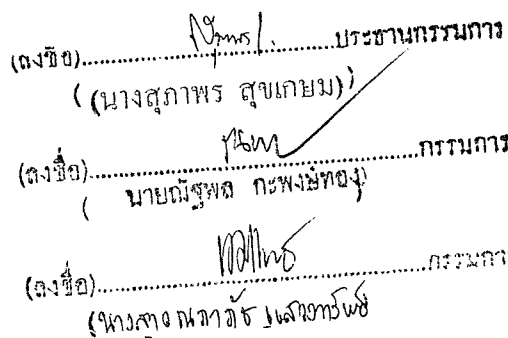 (ลงชื่อ)....................ประธานกรรมการ
((นางสุภาพร สุขเกษม))
(ลงชื่อ)....................กรรมการ
( นายณัฐพล กะพงษ์ทอง)
(ลงชื่อ)....................กรรมกา
(นางสาว